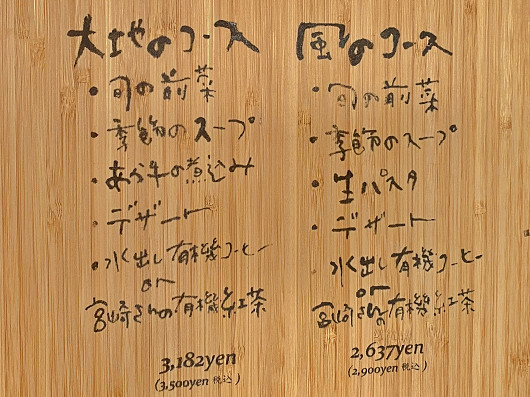 大地のコース
・旬の前菜
・季節のスープ
・あか牛の煮込み
・デザート
・水出し有機コーヒー
or
宮崎さんの有機紅茶
3,182yen
(3,500yen 税込)
風のコース
・旬の前菜
・季節のスープ
・生パスタ
・デザート
水出し有機コーヒー
or
宮崎さんの有機紅茶
2,637yen
(2,900yen 税込)